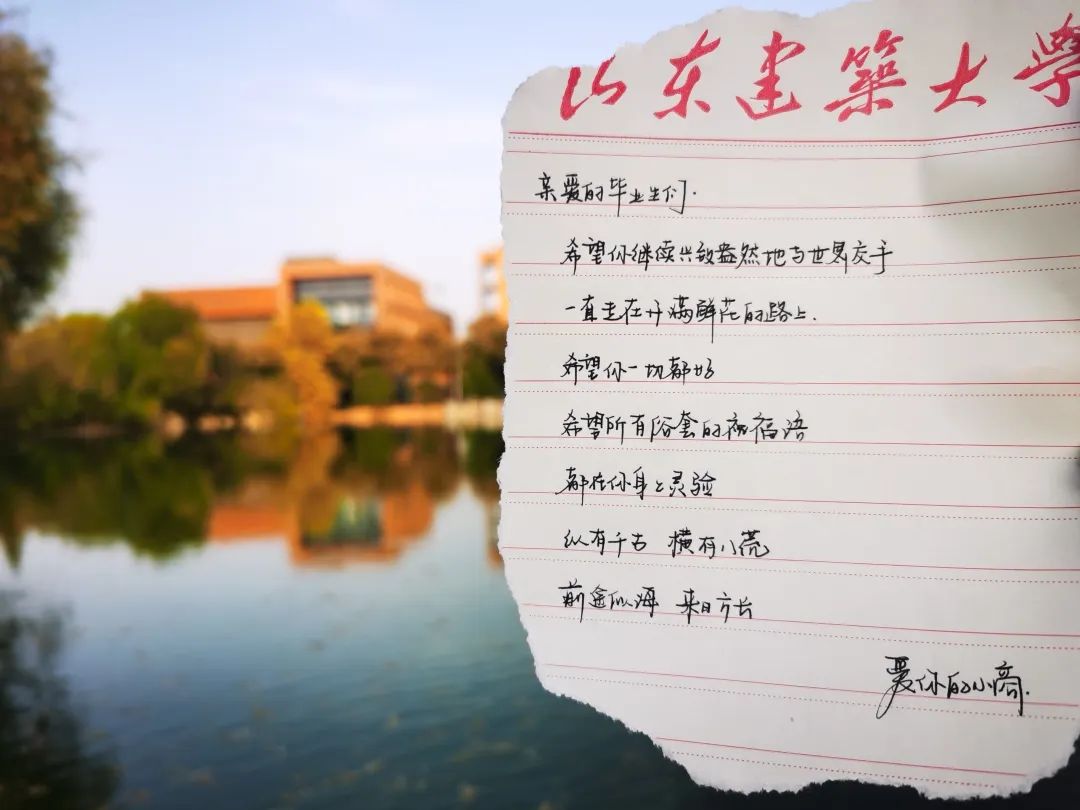 山东建築大學
亲爱的毕业生们.
希望你继续兴致盎然地与世界交手
一直走在开满鲜花的路上.
希望你一切都好
希望所有俗套的祝福语
都在你身上灵验
纵有千古 横有八荒
前途似海 来日方长
爱你的小商.